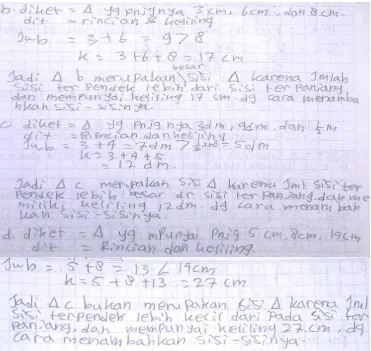 b. diket = Δ yg pnjgnya 3 cm, 6 cm, dan 8 cm.
dit = rincian & keliling.
Jwb = 3+6 = 9 > 8
k = 3+6+8 = 17 cm
besar
Jadi Δ b merupakan sisi Δ karena Jmlah
sisi terpendek lebih dari sisi terpanjang
dan mempunyai keliling 17 cm. dg cara menamba
hkan sisi-sisinya.
c. diket = Δ yg pnjgnya 3dm, 4dm, dan ½m
dit = Rincian dan keliling
Jwb = 3+4 = 7dm > ½×10 = 5dm
k = 3+4+5
= 12 dm.
Jadi Δ c merupakan sisi Δ karena Jml sisi ter
pendek lebih besar dr sisi terpanjang. dan me
miliki keliling 12dm. dg cara menambah
kan sisi-sisinya.
d. diket = Δ yg mpunyai Pnjg 5 cm, 8cm, 14cm
dit = Rincian dan keliling.
Jwb = 5+8 = 13 < 14cm
k = 5+8+13 = 27 cm
Jadi Δ c bukan merupakan sisi Δ karena Jml
sisi terpendek lebih kecil dari Pada sisi ter
panjang. dan mempunyai keliling 27 cm, dg
cara menambahkan sisi-sisinya